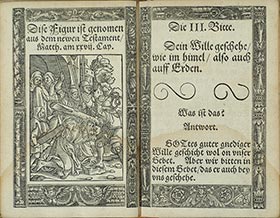 Dise Figur ist genomen
aus dem newen Testament/
Matth. am xxvij. Cap.
Die III. Bitte.
Dein Wille geschehe/
wie im himel/ also auch
auff Erden.
Was ist das?
Antwort.
GOttes guter gnediger
Wille geschicht wol on vnser
Gebet. Aber wir bitten in
diesem Gebet/ das er auch bey
vns geschehe.